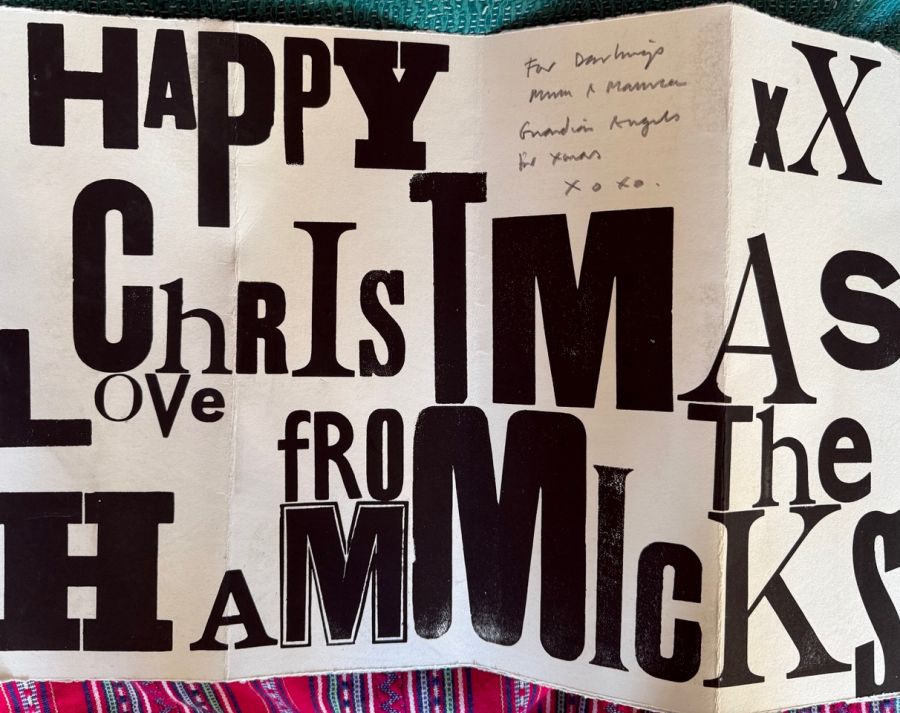 HAPPY xX
For Darlings
Mum &
Guardian Angels
for Xmas
x o x o.
ChRISTMAS
LOVe fROM The
HAMMICKS